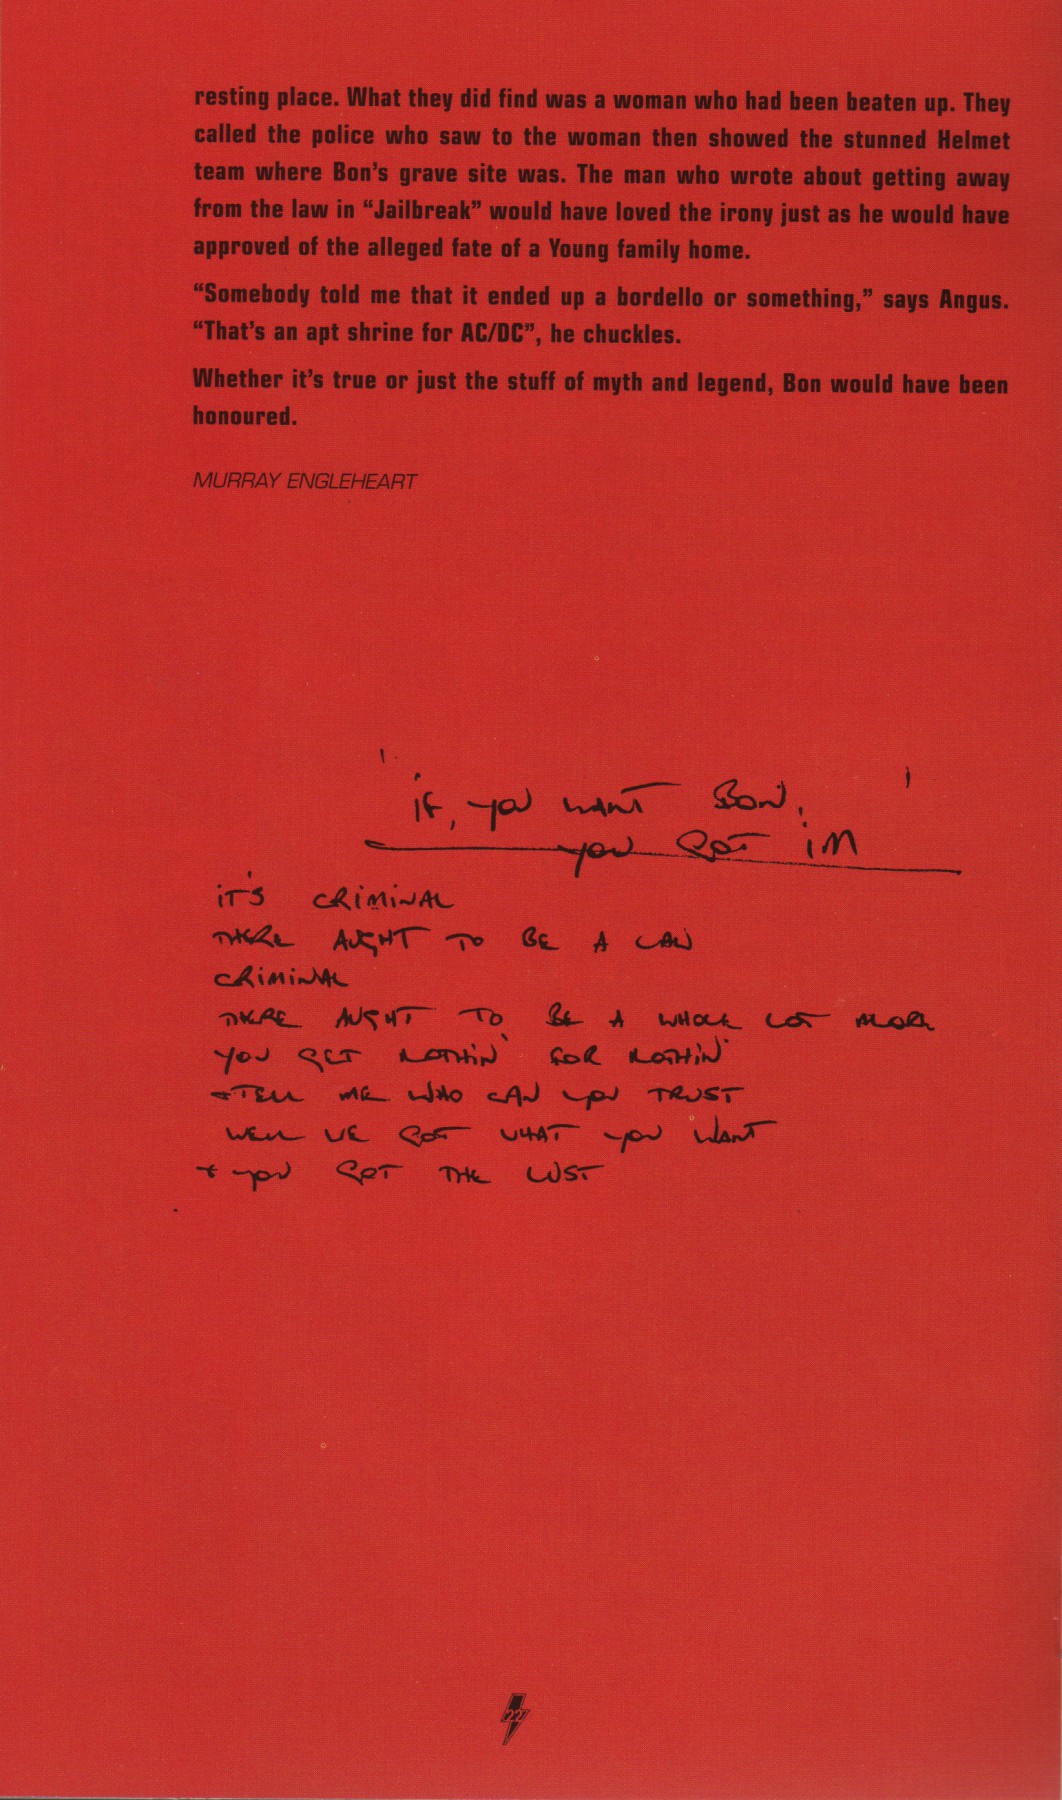 resting place. What they did find was a woman who had been beaten up. They
called the police who saw to the woman then showed the stunned Helmet
team where Bon's grave site was. The man who wrote about getting away
from the law in “Jailbreak” would have loved the irony just as he would have
approved of the alleged fate of a Young family home.
“Somebody told me that it ended up a bordello or something,” says Angus.
“That's an apt shrine for AC/DC”, he chuckles.
Whether it's true or just the stuff of myth and legend, Bon would have been
honoured.
MURRAY ENGLEHEART
'IF, YOU WANT BON,'
YOU GOT iM
iT'S CRiMiNAL
THERE AUGHT TO BE A LAW
CRiMiNAL
THERE AUGHT TO BE A WHOLE LOT MORE
YOU GET NOTHiN' FOR NOTHiN'
TELL ME WHO CAN YOU TRUST
WELL WE GOT WHAT YOU WANT
+ YOU GOT THE LUST
22